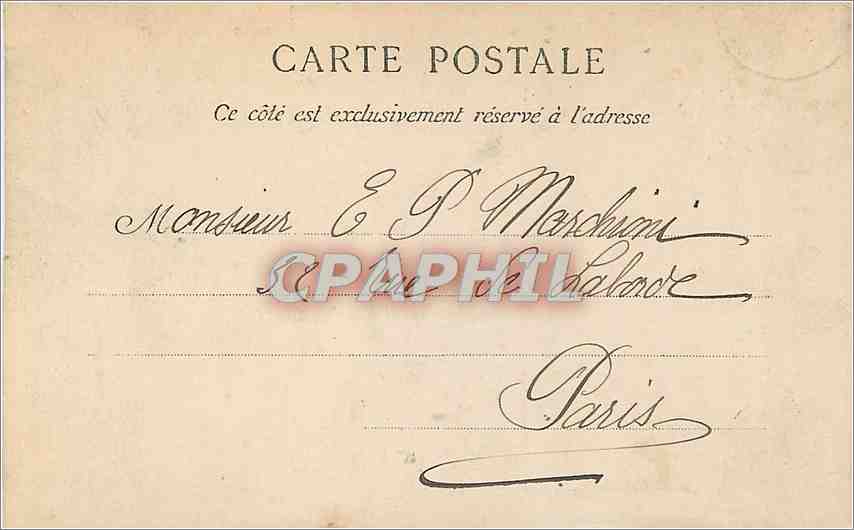 CARTE POSTALE
Ce côté est exclusivement réservé à l'adresse
Monsieur E P Marchioni
32 Rue de Laborde
CPAPHIL
Paris